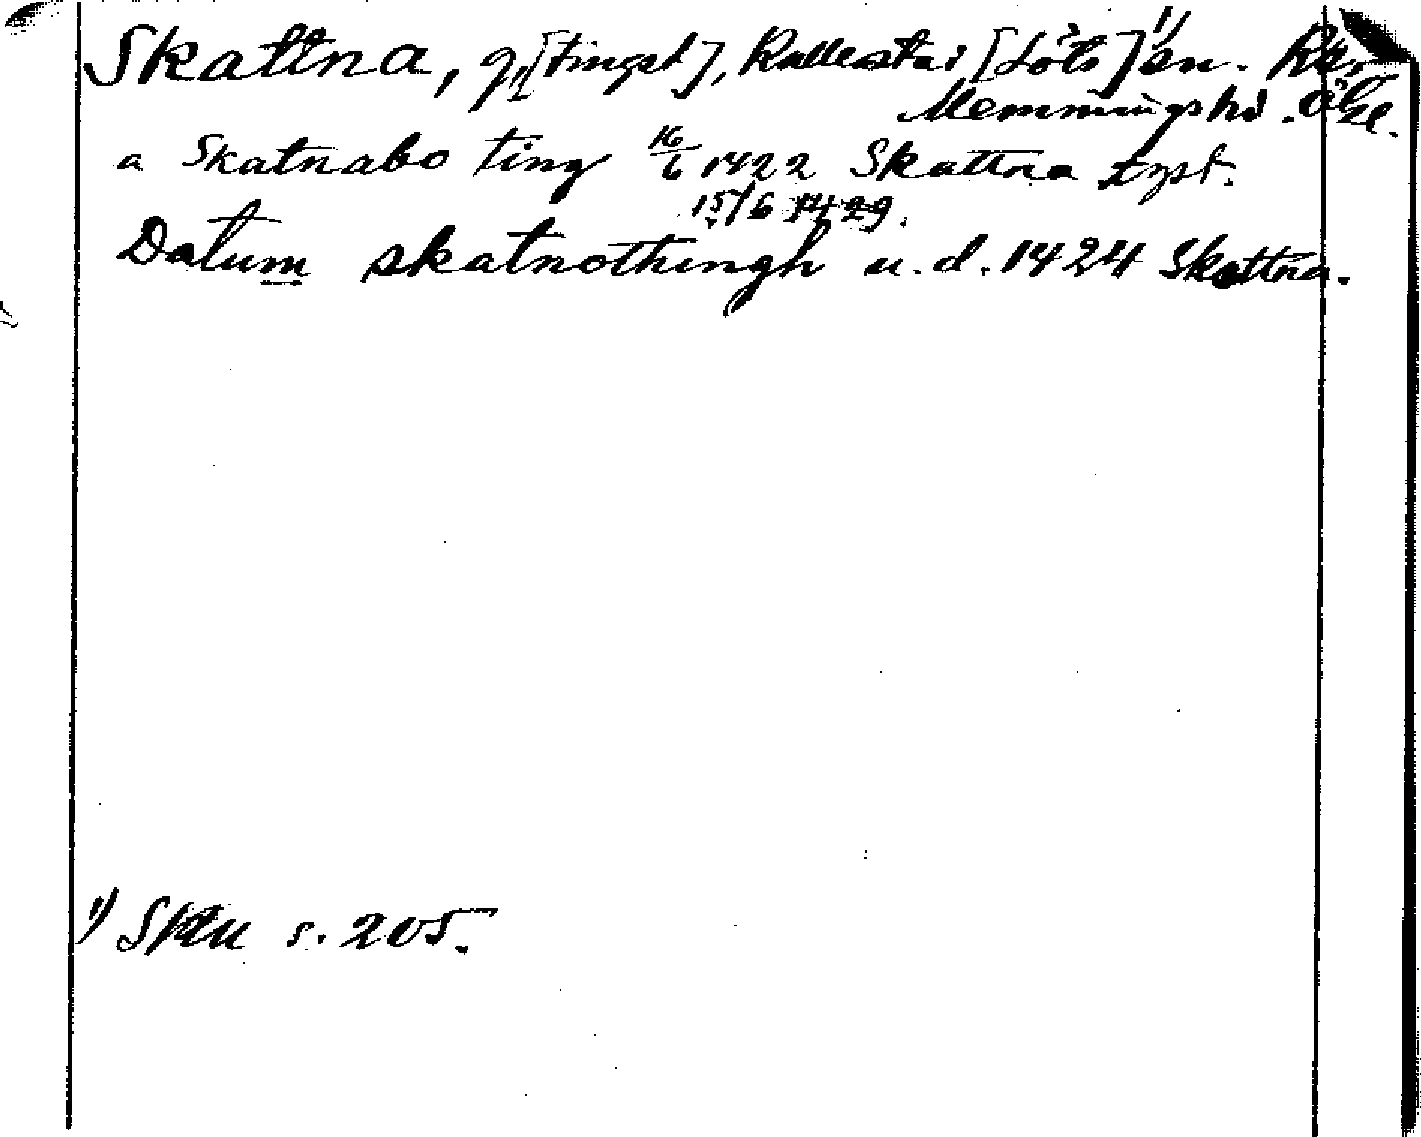 Skattna, g, [tingst], Kallesta i [Löts] 1) sn.
Memmings hd. Ögl.
a Skatnabo ting 16/6 1422 Skattna typt.
15/6 1429.
Datum skatnothingh u. d. 1424 Skattna.
1) s. 205.